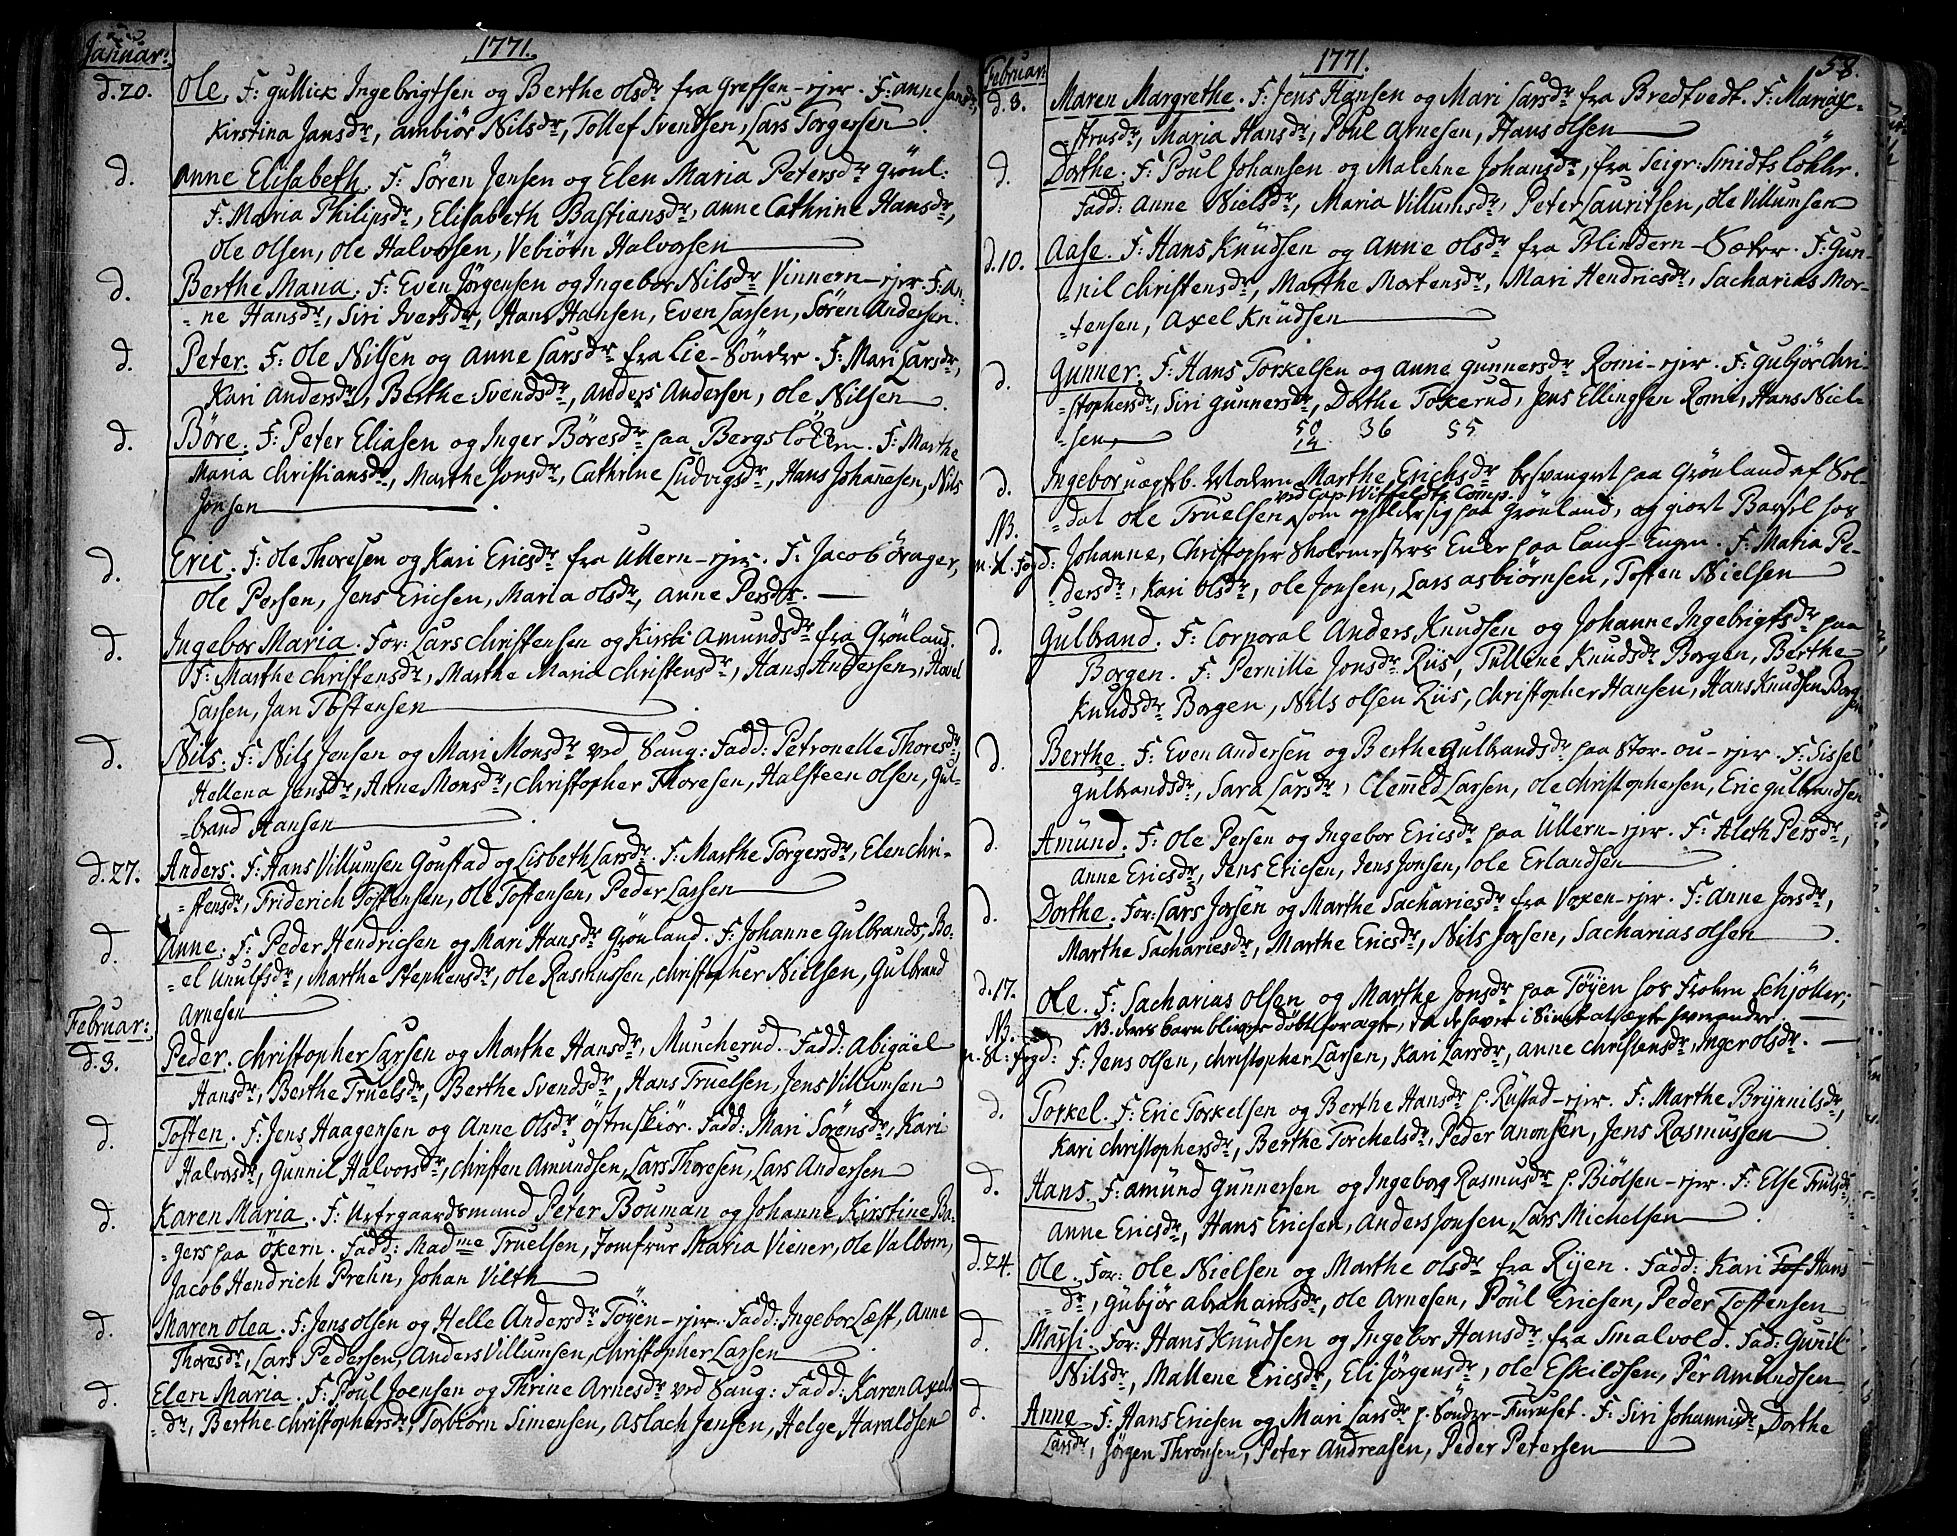 Januar:
1771.
d. 20. Ole. F: Gullick Ingebrigtsen og Berthe Olsdr fra Greffsen-ejer. F: Anne Jansdr,
Kirstina Jansdr, Ambiør Nilsdr, Tollef Svendsen, Lars Torgersen
d. Anne Elisabeth. F: Sören Jensen og Elen Maria Petersdr Grönl:
F: Maria Philipsdr, Elisabeth Bastiansdr, Anne Cathrine Hansdr,
Ole Olsen, Ole Halvorsen, Vebiörn Halvorsen
d. Berthe Maria. F: Even Jørgensen og Ingebor Nilsdr Vinnern-ejer F: An-
-ne Hansdr, Siri Iversdr, Hans Hansen, Even Larsen, Sören Andersen.
d. Peter. F: Ole Nilsen og Anne Larsdr fra Lie-Sönder. F: Mari Larsdr,
Kari Andersdr, Berthe Svendsdr, Anders Andersen, Ole Nilsen.
d. Böre. F: Peter Eliasen og Inger Böresdr paa Bergsløkken. F: Marthe
Maria Christiansdr, Marthe Jonsdr, Cathrine Ludvigsdr, Hans Johannesen, Nils
Jonsen
d. Eric. F: Ole Thoresen og Kari Ericsdr fra Ullern-ejer. F: Jacob Örager,
Ole Persen, Jens Ericsen, Maria Olsdr, Anne Persdr.
d. Ingebor Maria. For: Lars Christensen og Kirsti Amundsdr fra Grönland.
F: Marthe Christensdr, Marthe Maria Christensdr, Hans Andersen, Havel
Larsen, Jan Tostensen
d. Nils. F: Nils Jensen og Mari Monsdr ved Saug: Fadd: Petronelle Thoresdr,
Hellena Jensdr, Anne Monsdr, Christopher Thoresen, Halsteen Olsen, Gul-
-brand Hansen
d. 27. Anders. F: Hans Villumsen Goustad og Lisbeth Larsdr. F: Marthe Torgersdr, Elen Chri-
-stensdr, Friderich Tostensen, Ole Tostensen, Peder Larsen
d. Anne. F: Peder Hendricsen og Mari Hansdr Grönland. F: Johanne Gulbrands, Bo-
-el Unulfsdr, Marthe Stephensdr, Ole Rasmussen, Christopher Nielsen, Gulbrand
Arnesen
Februar:
d. 3. Peder. Christopher Larsen og Marthe Hansdr, Muncherud. Fadd: Abigäel
Hansdr, Berthe Truelsdr, Berthe Svendsdr, Hans Truelsen, Jens Villumsen
d. Tosten. F: Jens Haagensen og Anne Olsdr Östenskiör. Fadd: Mari Sörensdr, Kari
Halvorsdr, Gunnil Halvorsdr, Christen Amundsen, Lars Thoresen, Lars Andersen
d. Karen Maria. F: Urtegaardsmand Peter Bouman og Johanne Kirstine Ba-
-gers paa Ökern. Fadd: Madme Truelsen, Jomfrue Maria Viener, Ole Valbom,
Jacob Hendrich Prehn, Johan Vilth
d. Maren Olea. F: Jens Olsen og Helle Andersdr Töyen-ejer. Fadd: Ingebor Læst, Anne
Thoresdr, Lars Pedersen, Anders Villumsen, Christopher Larsen
d. Elen Maria. F: Poul Joensen og Thrine Arnesdr ved Saug: Fadd: Karen Axels
-dr, Berthe Christophersdr, Torbiörn Simensen, Aslach Jensen, Helge Haraldsen
Februar
1771.
58.
d. 8. Maren Margrethe. F: Jens Hansen og Mari Larsdr fra Bredtvedt. F: Maria
-strusdr, Maria Hansdr, Poul Arnesen, Hans Olsen
d. Dorthe. F: Poul Johansen og Malehne Johansdr, fra Seigr: Smidts Løkke.
Fadd: Anne Nielsdr, Maria Villumsdr, Peter Lauritsen, Ole Villumsen
d. 10. Aase. F: Hans Knudsen og Anne Olsdr fra Blindern-Sæter. F: Gun-
-nil Christensdr, Marthe Mortensdr, Mari Hendricsdr, Sacharias Mor-
-tensen, Axel Knudsen
d. Gunner. F: Hans Torkelsen og Anne Gunnersdr Romi-ejer. F: Gubjør Chri-
-stophersdr, Siri Gunnersdr, Dorthe Tokerud, Jens Ellingsen Romi, Hans Niel-
-sen
50 36 55
14
d. Ingebor uægtb. Moderen Marthe Erichsdr besvangret paa Grönland af Sol-
ved Cap: Witfeldts Comp.
NB. -dat Ole Truelsen, som opholder sig paa Grönland, og giort Barsel hos
Johanne, Christopher Skolemesters Enke paa Lang-Engen. F: Maria Pe-
-dersdr, Kari Olsdr, Ole Jonsen, Lars Asbiørnsen, Tosten Nielsen
d. Gulbrand. F: Corporal Anders Knudsen og Johanne Ingebrigtsdr paa
Borgen. F: Pernille Jonsdr Riis, Tulline Knudsdr Borgen, Berthe
Knudsdr Borgen, Nils Olsen Riis, Christopher Hansen, Hans Knudsen Borgen
d. Berthe. F: Even Andersen og Berthe Gulbrandsdr paa Stor-ou-ejer. F: Sissel
Gulbrandsdr, Sara Larsdr, Clemed Larsen, Ole Christophersen, Eric Gulbrandsen
d. Amund. F: Ole Persen og Ingebor Ericsdr paa Ullern-ejer. F: Aleth Persdr,
Anne Ericsdr, Jens Ericsen, Jens Jonsen, Ole Erlandsen
d. Dorthe. For: Lars Jorsen og Marthe Sachariesdr fra Voxen-ejer. F: Anne Jorsdr,
Marthe Sachariesdr, Marthe Ericsdr, Nils Jorsen, Sacharias Olsen
d. 17. Ole. F: Sacharias Olsen og Marthe Jonsdr paa Töyen hos Frohm Schjöller;
NB. NB. deres barn bliver døbt for ægte, da de haver i Sinde at ægte hverandre.
F: Jens Olsen, Christopher Larsen, Kari Larsdr, Anne Christensdr, Inger Olsdr.
d. Torkel. F: Eric Torkelsen og Berthe Hansdr p. Rustad-ejer. F: Marthe Brynnilsdr,
Kari Christophersdr, Berthe Torchelsdr, Peder Anonsen, Jens Rasmussen
d. Hans. F: Amund Gunnersen og Ingeborg Rasmusdr p. Biölsen-ejer. F: Else Trulsdr,
Anne Ericsdr, Hans Ericsen, Anders Jonsen, Lars Michelsen
d. 24. Ole. For: Ole Nielsen og Marthe Olsdr fra Ryen. Fadd: Kari Hans
-dr, Gubjør Abrahamsdr, Ole Arnesen, Poul Ericsen, Peder Tostensen
d. Marthi. For: Hans Knudsen og Ingebor Hansdr fra Smalvold. Fad: Gunil
Nilsdr, Mallene Ericsdr, Eli Jörgensdr, Ole Eskildsen, Per Amundsen
d. Anne F: Hans Ericsen og Mari Larsdr p. Sönder-Furuset. F: Siri Johannisdr, Dorthe
Larsdr, Jörgen Thronsen, Peter Andreasen, Peder Petersen